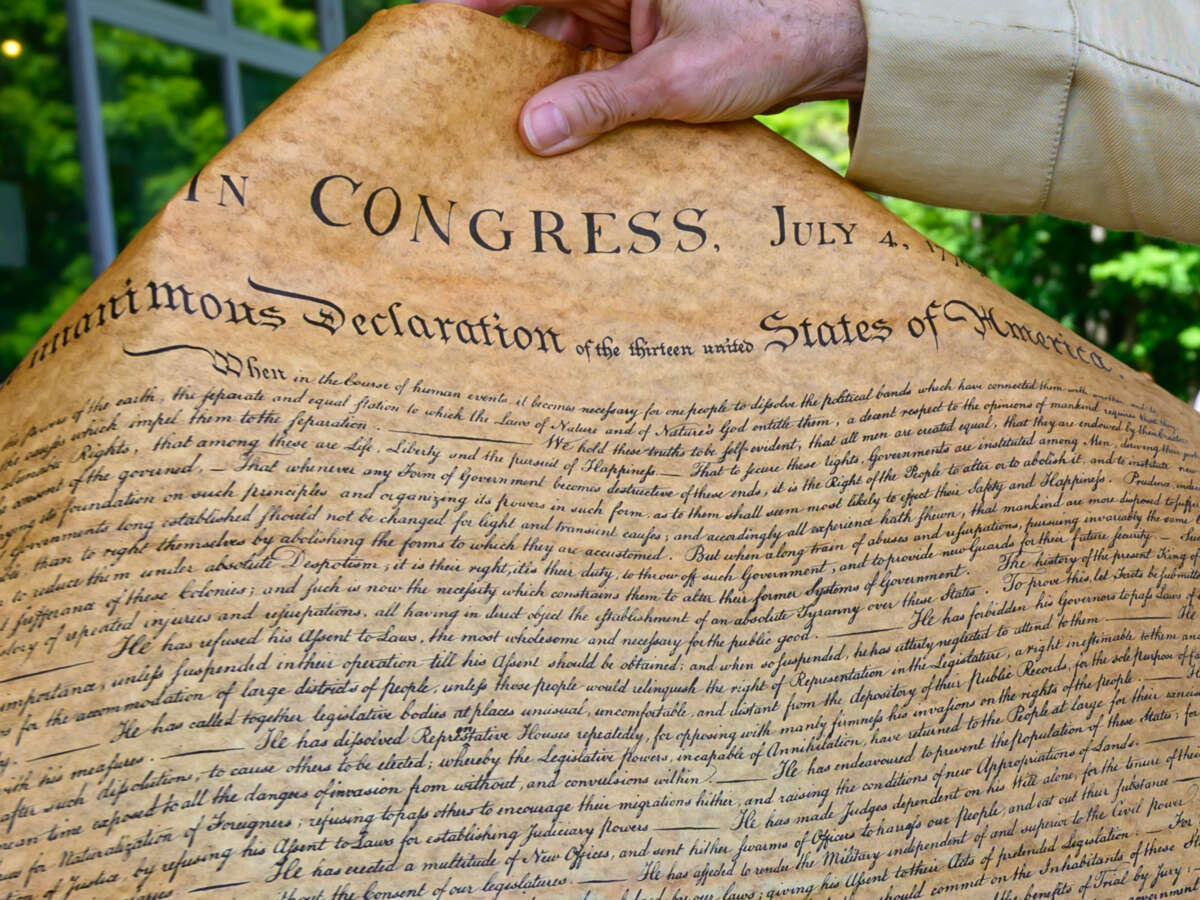 IN CONGRESS, JULY 4,
unanimous Declaration of the thirteen united States of America.
When in the Course of human events it becomes necessary for one people to dissolve the political bands which have connected them with another, and to
the Powers of the earth, the separate and equal station to which the Laws of Nature and of Nature's God entitle them, a decent respect to the opinions of mankind requires that they
the causes which impel them to the separation. We hold these truths to be self-evident, that all men are created equal, that they are endowed by their Creator
Rights, that among these are Life, Liberty and the pursuit of Happiness. — That to secure these rights, Governments are instituted among Men, deriving their just
consent of the governed, — That whenever any Form of Government becomes destructive of these ends, it is the Right of the People to alter or to abolish it, and to institute new
its foundation on such principles and organizing its powers in such form, as to them shall seem most likely to effect their Safety and Happiness. Prudence, indeed
Governments long established should not be changed for light and transient causes; and accordingly all experience hath shewn, that mankind are more disposed to suffer
than to right themselves by abolishing the forms to which they are accustomed. But when a long train of abuses and usurpations, pursuing invariably the same
to reduce them under absolute Despotism, it is their right, it is their duty, to throw off such Government, and to provide new Guards for their future security. — Such
sufferance of these Colonies; and such is now the necessity which constrains them to alter their former Systems of Government. The history of the present King of
of repeated injuries and usurpations, all having in direct object the establishment of an absolute Tyranny over these States. To prove this, let Facts be submitted
He has refused his Assent to Laws, the most wholesome and necessary for the public good. He has forbidden his Governors to pass Laws of
importance, unless suspended in their operation till his Assent should be obtained; and when so suspended, he has utterly neglected to attend to them. He
for the accommodation of large districts of people, unless those people would relinquish the right of Representation in the Legislature, a right inestimable to them and
He has called together legislative bodies at places unusual, uncomfortable, and distant from the depository of their Public Records, for the sole purpose of
with his measures. He has dissolved Representative Houses repeatedly, for opposing with manly firmness his invasions on the rights of the people.
after such dissolutions, to cause others to be elected; whereby the Legislative Powers, incapable of Annihilation, have returned to the People at large for their
mean time exposed to all the dangers of invasion from without, and convulsions within. He has endeavoured to prevent the population of these States; for
for Naturalization of Foreigners; refusing to pass others to encourage their migrations hither, and raising the conditions of new Appropriations of Lands.
of Justice, by refusing his Assent to Laws for establishing Judiciary Powers He has made Judges dependent on his Will alone, for the tenure of their
He has erected a multitude of New Offices, and sent hither swarms of Officers to harrass our people, and eat out their substance
without the Consent of our legislatures. He has affected to render the Military independent of and superior to the Civil power
by our laws; giving his Assent to their Acts of pretended Legislation: — For
should commit on the Inhabitants of these
the benefits of Trial by Jury: